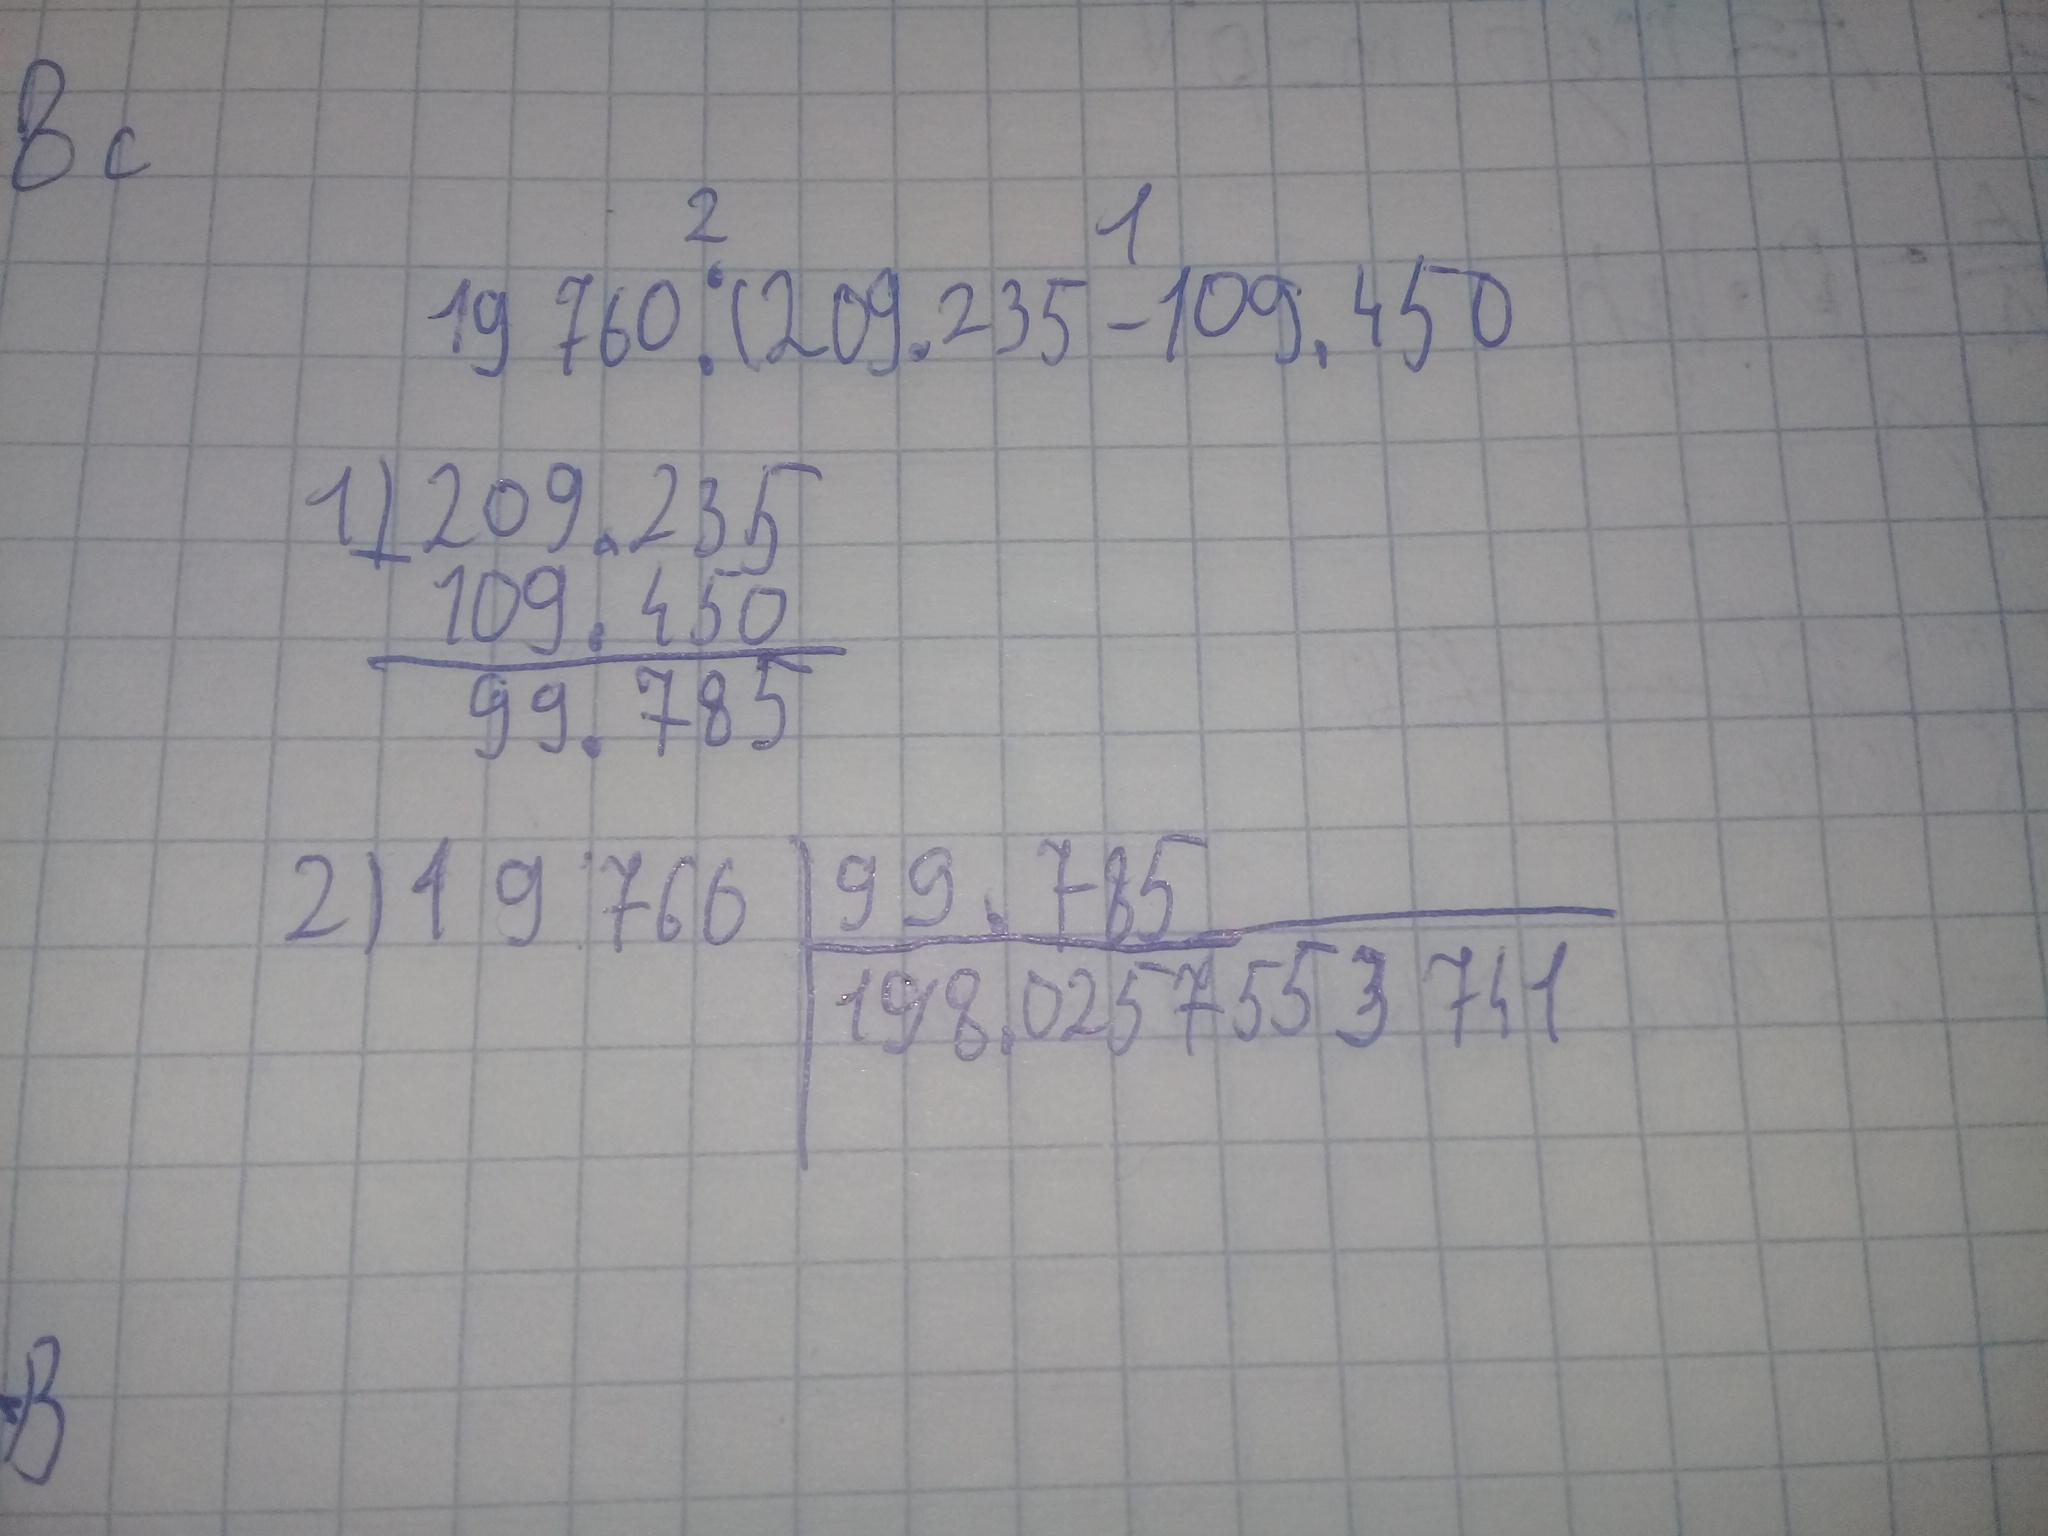 В с
2 1
19 760:(209.235-109.450
1) 209.235
- 109.450
99.785
2) 19 760 | 99.785
198.0257553741
В